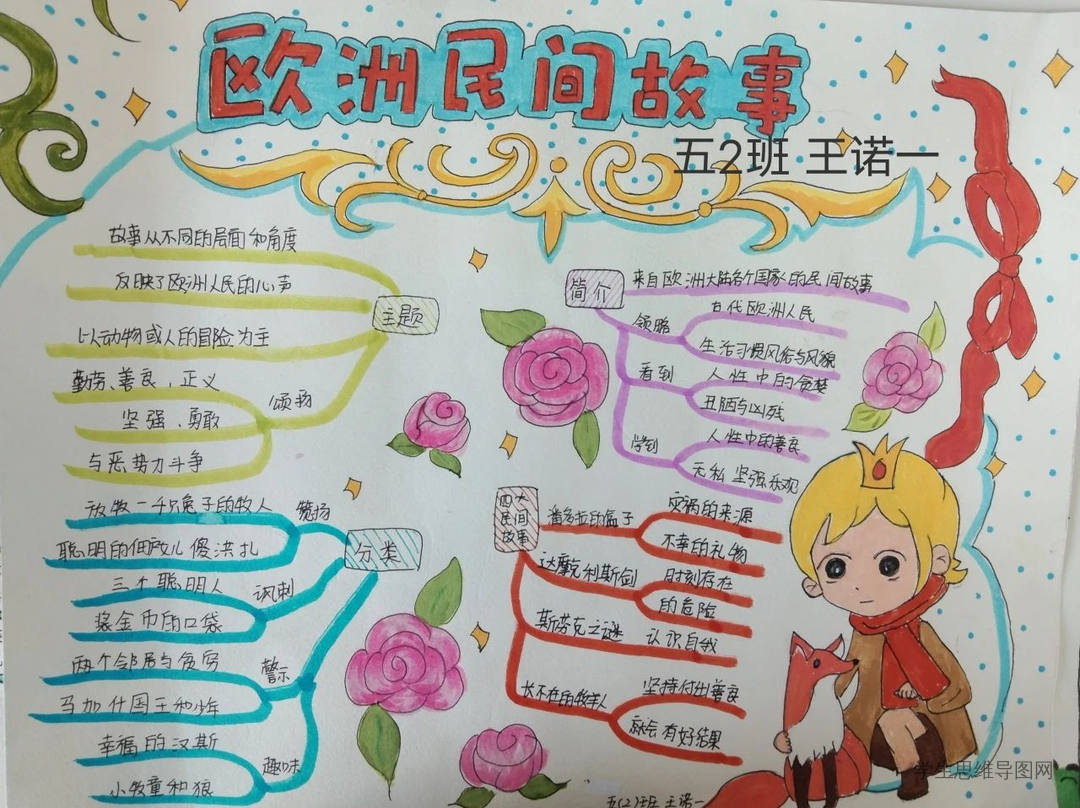 欧洲民间故事
五2班 王诺一
主题
故事从不同的局面和角度
反映了欧洲人民的心声
以动物或人的冒险为主
颂扬
勤劳、善良，正义
坚强、勇敢
与恶势力斗争
简介
来自欧洲大陆各个国家的民间故事
领略
古代欧洲人民
生活习惯风俗与风貌
看到
人性中的贪婪
丑陋与凶残
学到
人性中的善良
无私 坚强 乐观
分类
赞扬
放牧一千只兔子的牧人
聪明的
傻洪扎
讽刺
三个聪明人
装金币的口袋
警示
两个邻居与贪穷
马加什国王和少年
趣味
幸福的汉斯
小牧童和狼
四大民间故事
潘多拉的盒子
灾祸的来源
不幸的礼物
达摩克利斯剑
时刻存在
的危险
斯芬克之谜
认识自我
坚持付出善良
就会有好结果
五(2)班 王诺一
学生思维导图网